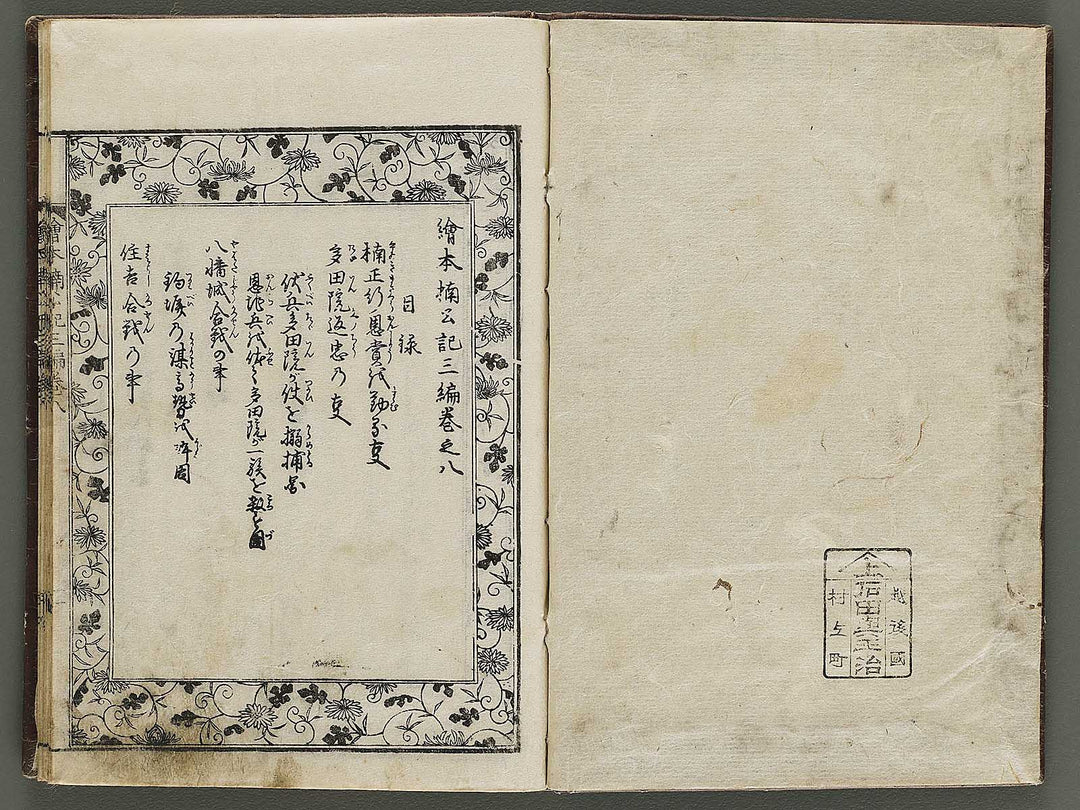 繪本楠公記三編巻之八
目録
楠正行恩賞を勤る事
多田院返忠の事
伏兵多田院が使を搦捕図
恩地兵を伏て多田院が一族を数を図
八幡城合戦の事
釣塀の謀高勢を砕図
住吉合戦の事
越後國
岩田
治
村上町